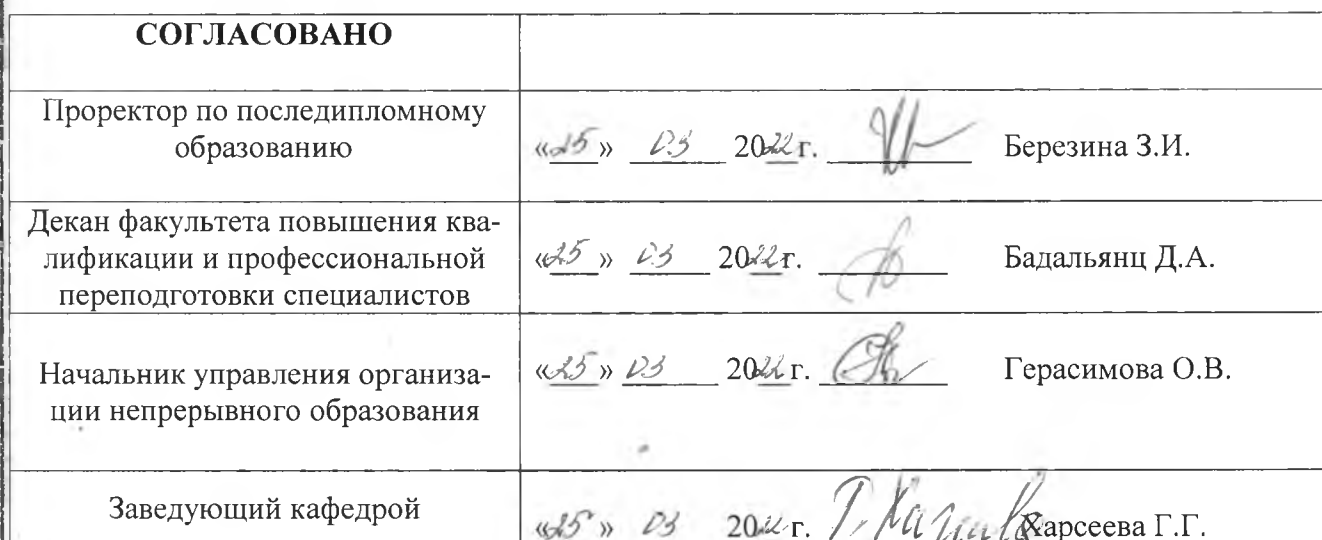 СОГЛАСОВАНО
Проректор по последипломному
образованию
«25» 03 2022г. Березина З.И.
Декан факультета повышения ква-
лификации и профессиональной
переподготовки специалистов
«25» 03 2022г. Бадальянц Д.А.
Начальник управления организа-
ции непрерывного образования
«25» 03 2022 г. Герасимова О.В.
Заведующий кафедрой
«25» 03 2022 г. Харсеева Г.Г.